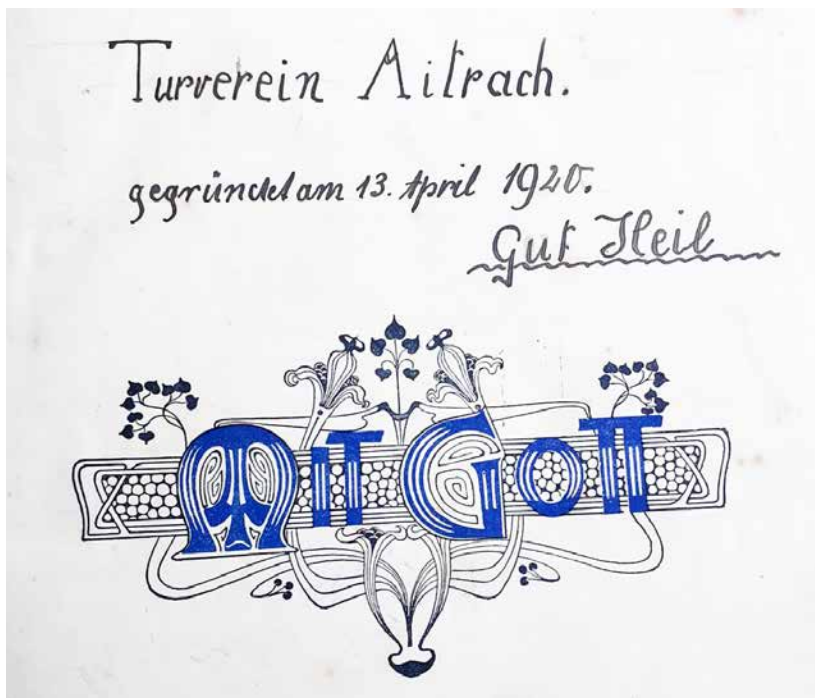 Turverein Aitrach.
gegründet am 13. April 1920.
Gut Heil
MIT GOTT